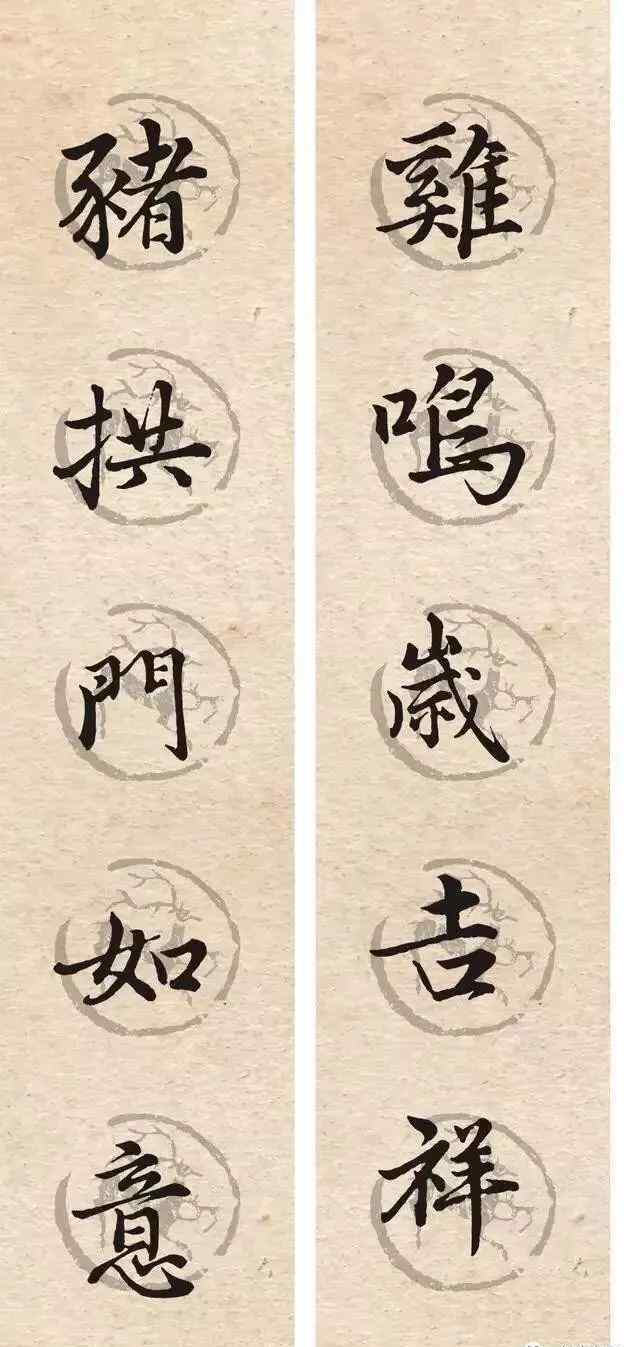 雞鳴歲吉祥
豬拱門如意